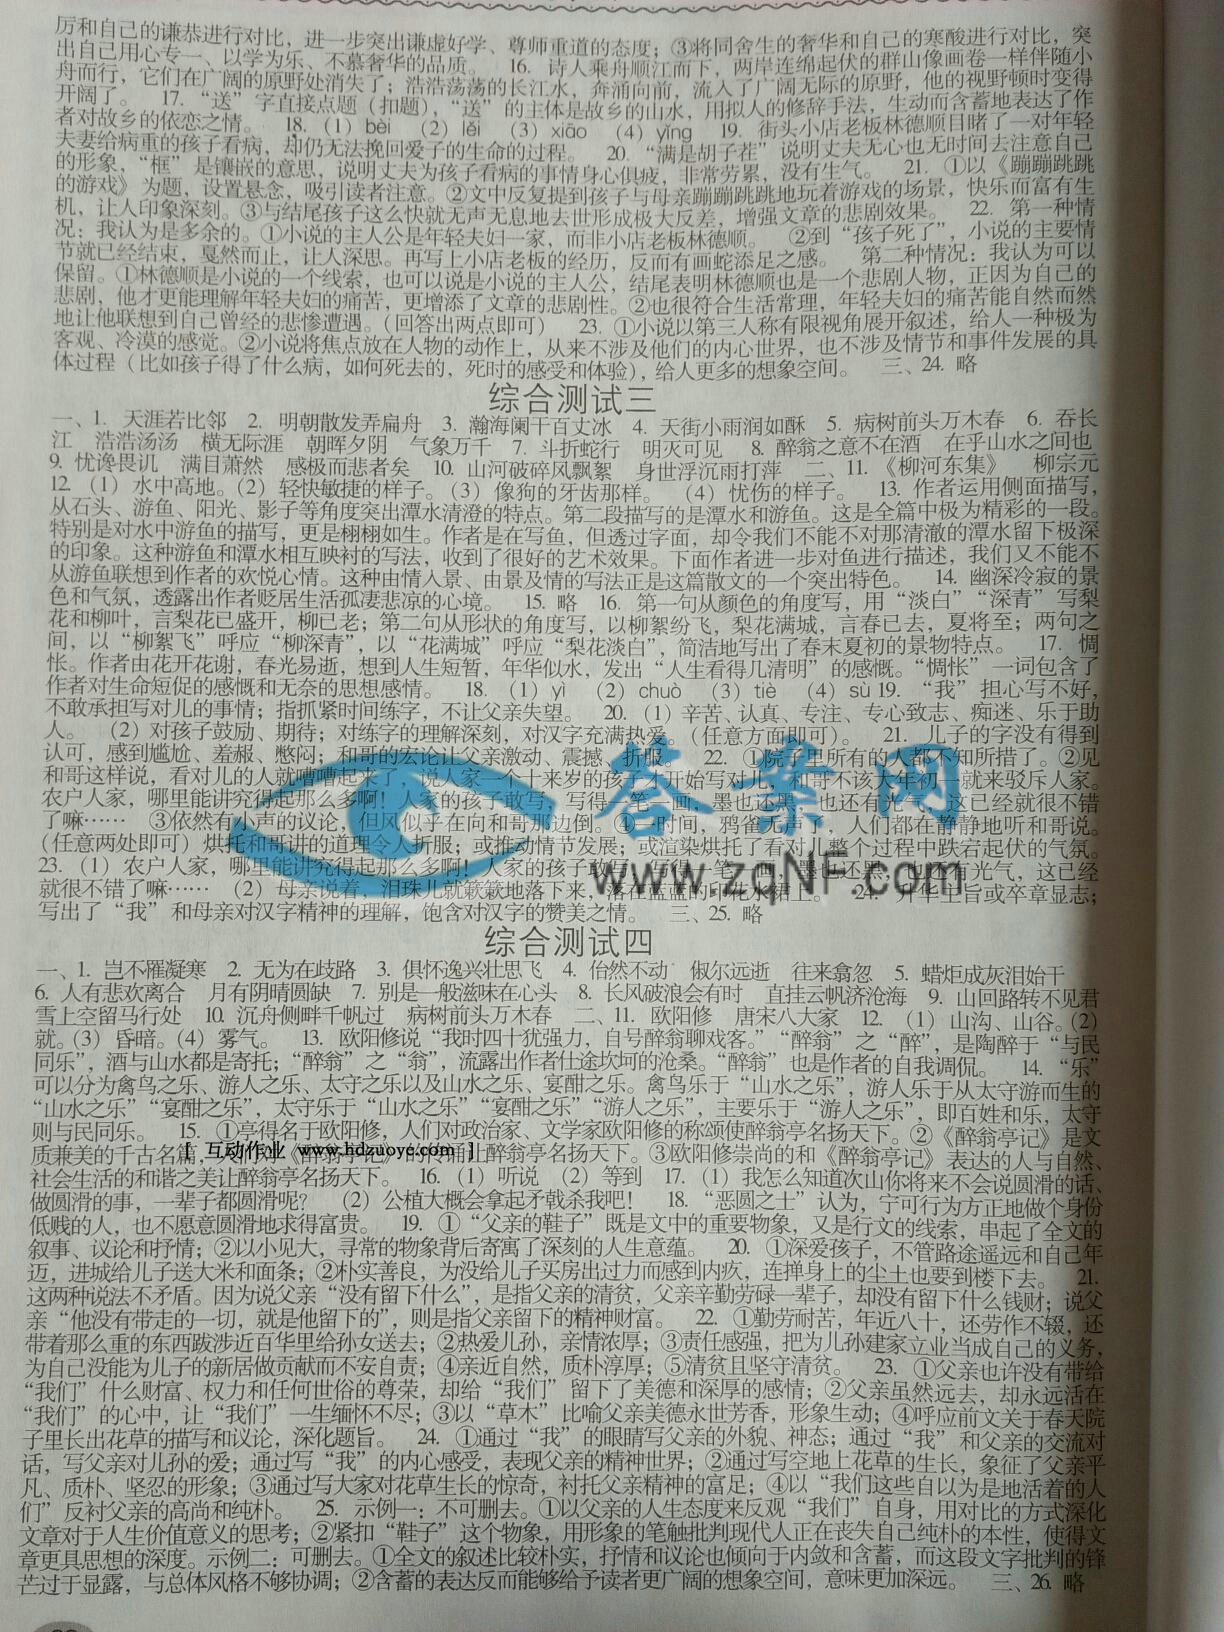 厉和自己的谦恭进行对比，进一步突出谦虚好学、尊师重道的态度；③将同舍生的奢华和自己的寒酸进行对比，突
出自己用心专一、以学为乐、不慕奢华的品质。 16. 诗人乘舟顺江而下，两岸连绵起伏的群山像画卷一样伴随小
舟而行，它们在广阔的原野处消失了；浩浩荡荡的长江水，奔涌向前，流入了广阔无际的原野，他的视野顿时变得
开阔了。 17. “送”字直接点题（扣题），“送”的主体是故乡的山水，用拟人的修辞手法，生动而含蓄地表达了作
者对故乡的依恋之情。 18. （1）bèi （2）lěi （3）xiāo （4）yǐng 19. 街头小店老板林德顺目睹了一对年轻
夫妻给病重的孩子看病，却仍无法挽回爱子的生命的过程。 20. “满是胡子茬”说明丈夫无心也无时间去注意自己
的形象，“框”是镶嵌的意思，说明丈夫为孩子看病的事情身心俱疲，非常劳累，没有生气。 21. ①以《蹦蹦跳跳
的游戏》为题，设置悬念，吸引读者注意。②文中反复提到孩子与母亲蹦蹦跳跳地玩着游戏的场景，快乐而富有生
机，让人印象深刻。③与结尾孩子这么快就无声无息地去世形成极大反差，增强文章的悲剧效果。 22. 第一种情
况：我认为是多余的。①小说的主人公是年轻夫妇一家，而非小店老板林德顺。 ②到“孩子死了”，小说的主要情
节就已经结束，戛然而止，让人深思。再写上小店老板的经历，反而有画蛇添足之感。 第二种情况：我认为可以
保留。①林德顺是小说的一个线索，也可以说是小说的主人公，结尾表明林德顺也是一个悲剧人物，正因为自己的
悲剧，他才更能理解年轻夫妇的痛苦，更增添了文章的悲剧性。②也很符合生活常理，年轻夫妇的痛苦能自然而然
地让他联想到自己曾经的悲惨遭遇。（回答出两点即可） 23. ①小说以第三人称有限视角展开叙述，给人一种极为
客观、冷漠的感觉。②小说将焦点放在人物的动作上，从来不涉及他们的内心世界，也不涉及情节和事件发展的具
体过程（比如孩子得了什么病，如何死去的，死时的感受和体验），给人更多的想象空间。 三、24. 略
综合测试三
一、1. 天涯若比邻 2. 明朝散发弄扁舟 3. 瀚海阑干百丈冰 4. 天街小雨润如酥 5. 病树前头万木春 6. 吞长
江 浩浩汤汤 横无际涯 朝晖夕阴 气象万千 7. 斗折蛇行 明灭可见 8. 醉翁之意不在酒 在乎山水之间也
9. 忧谗畏讥 满目萧然 感极而悲者矣 10. 山河破碎风飘絮 身世浮沉雨打萍 二、11. 《柳河东集》 柳宗元
12. （1）水中高地。（2）轻快敏捷的样子。（3）像狗的牙齿那样。 （4）忧伤的样子。 13. 作者运用侧面描写，
从石头、游鱼、阳光、影子等角度突出潭水清澄的特点。第二段描写的是潭水和游鱼。这是全篇中极为精彩的一段。
特别是对水中游鱼的描写，更是栩栩如生。作者是在写鱼，但透过字面，却令我们不能不对那清澈的潭水留下极深
的印象。这种游鱼和潭水相互映衬的写法，收到了很好的艺术效果。下面作者进一步对鱼进行描述，我们又不能不
从游鱼联想到作者的欢悦心情。这种由情入景、由景及情的写法正是这篇散文的一个突出特色。 14. 幽深冷寂的景
色和气氛，透露出作者贬居生活孤凄悲凉的心境。 15. 略 16. 第一句从颜色的角度写，用“淡白”“深青”写梨
花和柳叶，言梨花已盛开，柳已老；第二句从形状的角度写，以柳絮纷飞，梨花满城，言春已去，夏将至；两句之
间，以“柳絮飞”呼应“柳深青”，以“花满城”呼应“梨花淡白”，简洁地写出了春末夏初的景物特点。 17. 惆
怅。作者由花开花谢，春光易逝，想到人生短暂，年华似水，发出“人生看得几清明”的感慨。“惆怅”一词包含了
作者对生命短促的感慨和无奈的思想感情。 18. （1）yì （2）chuò （3）tiè （4）sù 19. “我”担心写不好，
不敢承担写对儿的事情；指抓紧时间练字，不让父亲失望。 20. （1）辛苦、认真、专注、专心致志、痴迷、乐于助
人。 （2）对孩子鼓励、期待；对练字的理解深刻，对汉字充满热爱。（任意方面即可）。 21. 儿子的字没有得到
认可，感到尴尬、羞赧、憋闷；和哥的宏论让父亲激动、震撼、折服。 22. ①院子里所有的人都不知所措了。②见
和哥这样说，看对儿的人就嘈嘈起来了，说人家一个十来岁的孩子才开始写对儿，和哥不该大年初一就来驳斥人家。
农户人家，哪里能讲究得起那么多啊！人家的孩子敢写，写得一笔一画，墨也还黑，也还有光气，这已经就很不错
了嘛…… ③依然有小声的议论，但风似乎在向和哥那边倒。④一时间，鸦雀无声了，人们都在静静地听和哥说。
（任意两处即可）烘托和哥讲的道理令人折服；或推动情节发展；或渲染烘托了看对儿整个过程中跌宕起伏的气氛。
23. （1）农户人家，哪里能讲究得起那么多啊！人家的孩子敢写，写得一笔一画，墨也还黑，也还有光气，这已经
就很不错了嘛…… （2）母亲说着，泪珠儿就簌簌地落下来，落在蓝蓝的印花水裙上。 24. 升华主旨或卒章显志；
写出了“我”和母亲对汉字精神的理解，饱含对汉字的赞美之情。 三、25. 略
答案网
www.zqNF.com
综合测试四
一、1. 岂不罹凝寒 2. 无为在歧路 3. 俱怀逸兴壮思飞 4. 佁然不动 俶尔远逝 往来翕忽 5. 蜡炬成灰泪始干
6. 人有悲欢离合 月有阴晴圆缺 7. 别是一般滋味在心头 8. 长风破浪会有时 直挂云帆济沧海 9. 山回路转不见君
雪上空留马行处 10. 沉舟侧畔千帆过 病树前头万木春 二、11. 欧阳修 唐宋八大家 12. （1）山沟、山谷。（2）
就。（3）昏暗。（4）雾气。 13. 欧阳修说“我时四十犹强力，自号醉翁聊戏客。”“醉翁”之“醉”，是陶醉于“与民
同乐”，酒与山水都是寄托；“醉翁”之“翁”，流露出作者仕途坎坷的沧桑。“醉翁”也是作者的自我调侃。 14. “乐”
可以分为禽鸟之乐、游人之乐、太守之乐以及山水之乐、宴酣之乐。禽鸟乐于“山水之乐”，游人乐于从太守游而生的
“山水之乐”“宴酣之乐”，太守乐于“山水之乐”“宴酣之乐”“游人之乐”，主要乐于“游人之乐”，即百姓和乐，太守
则与民同乐。 15. ①亭得名于欧阳修，人们对政治家、文学家欧阳修的称颂使醉翁亭名扬天下。②《醉翁亭记》是文
质兼美的千古名篇，《醉翁亭记》的传诵让醉翁亭名扬天下。③欧阳修崇尚的和《醉翁亭记》表达的人与自然、
[ 互动作业 www.hdzuoye.com ]
社会生活的和谐之美让醉翁亭名扬天下。 16. （1）听说 （2）等到 17. （1）我怎么知道次山你将来不会说圆滑的话、
做圆滑的事，一辈子都圆滑呢？ （2）公植大概会拿起矛戟杀我吧！ 18. “恶圆之士”认为，宁可行为方正地做个身份
低贱的人，也不愿意圆滑地求得富贵。 19. ①“父亲的鞋子”既是文中的重要物象，又是行文的线索，串起了全文的
叙事、议论和抒情；②以小见大，寻常的物象背后寄寓了深刻的人生意蕴。 20. ①深爱孩子，不管路途遥远和自己年
迈，进城给儿子送大米和面条；②朴实善良，为没给儿子买房出过力而感到内疚，连掸身上的尘土也要到楼下去。 21.
这两种说法不矛盾。因为说父亲“没有留下什么”，是指父亲的清贫，父亲辛勤劳碌一辈子，却没有留下什么钱财；说父
亲“他没有带走的一切，就是他留下的”，则是指父亲留下的精神财富。 22. ①勤劳耐苦，年近八十，还劳作不辍，还
带着那么重的东西跋涉近百华里给孙女送去；②热爱儿孙，亲情浓厚；③责任感强，把为儿孙建家立业当成自己的义务，
为自己没能为儿子的新居做贡献而不安自责；④亲近自然，质朴淳厚；⑤清贫且坚守清贫。 23. ①父亲也许没有带给
“我们”什么财富、权力和任何世俗的尊荣，却给“我们”留下了美德和深厚的感情；②父亲虽然远去，却永远活在
“我们”的心中，让“我们”一生缅怀不尽；③以“草木”比喻父亲美德永世芳香，形象生动；④呼应前文关于春天院
子里长出花草的描写和议论，深化题旨。 24. ①通过“我”的眼睛写父亲的外貌、神态；通过“我”和父亲的交流对
话，写父亲对儿孙的爱；通过写“我”的内心感受，表现父亲的精神世界；②通过写空地上花草的生长，象征了父亲平
凡、质朴、坚忍的形象；③通过写大家对花草生长的惊奇，衬托父亲精神的富足；④以“我们这些自以为是地活着的人
们”反衬父亲的高尚和纯朴。 25. 示例一：不可删去。①以父亲的人生态度来反观“我们”自身，用对比的方式深化
文章对于人生价值意义的思考；②紧扣“鞋子”这个物象，用形象的笔触批判现代人正在丧失自己纯朴的本性，使得文
章更具思想的深度。示例二：可删去。①全文的叙述比较朴实，抒情和议论也倾向于内敛和含蓄，而这段文字批判的锋
芒过于显露，与总体风格不够协调；②含蓄的表达反而能够给予读者更广阔的想象空间，意味更加深远。 三、26. 略